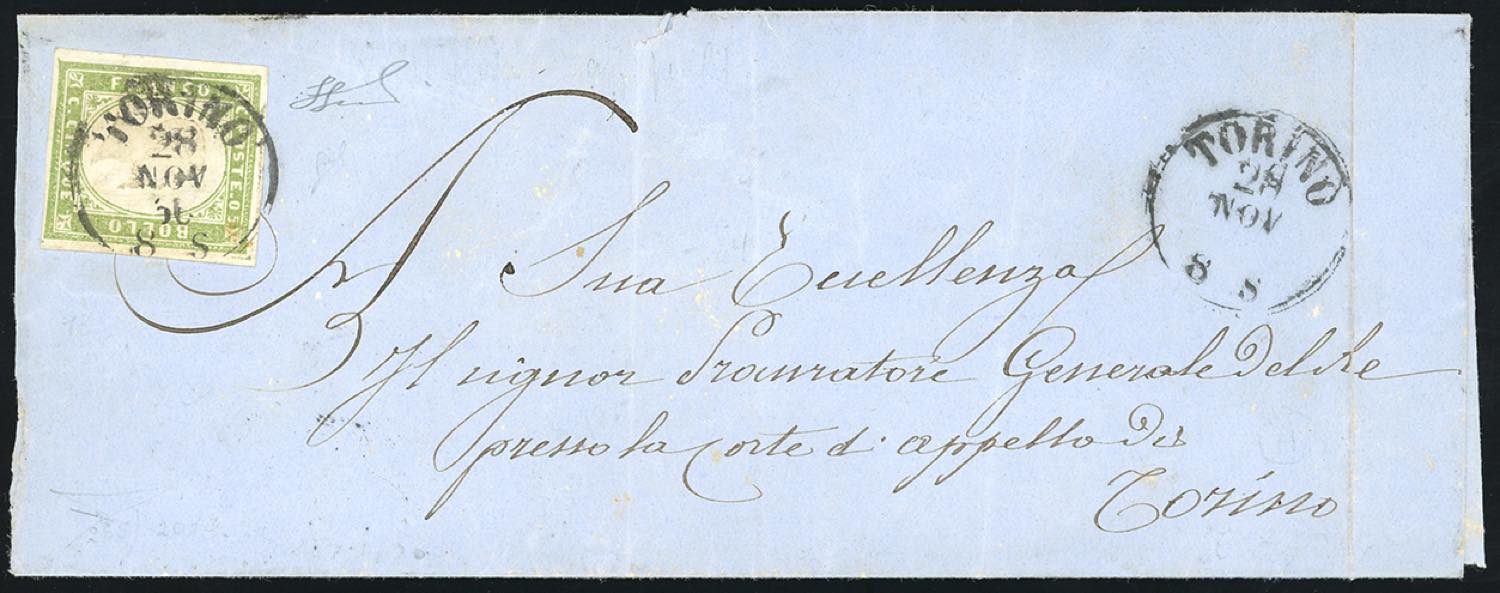 FRANCO
C. CINQUE
POSTE
BOLLO
TORINO
28
NOV
8 S
TORINO
28
NOV
8 S
A Sua Eccellenza
Il signor Procuratore Generale del Re
presso la Corte d'appello di
Torino